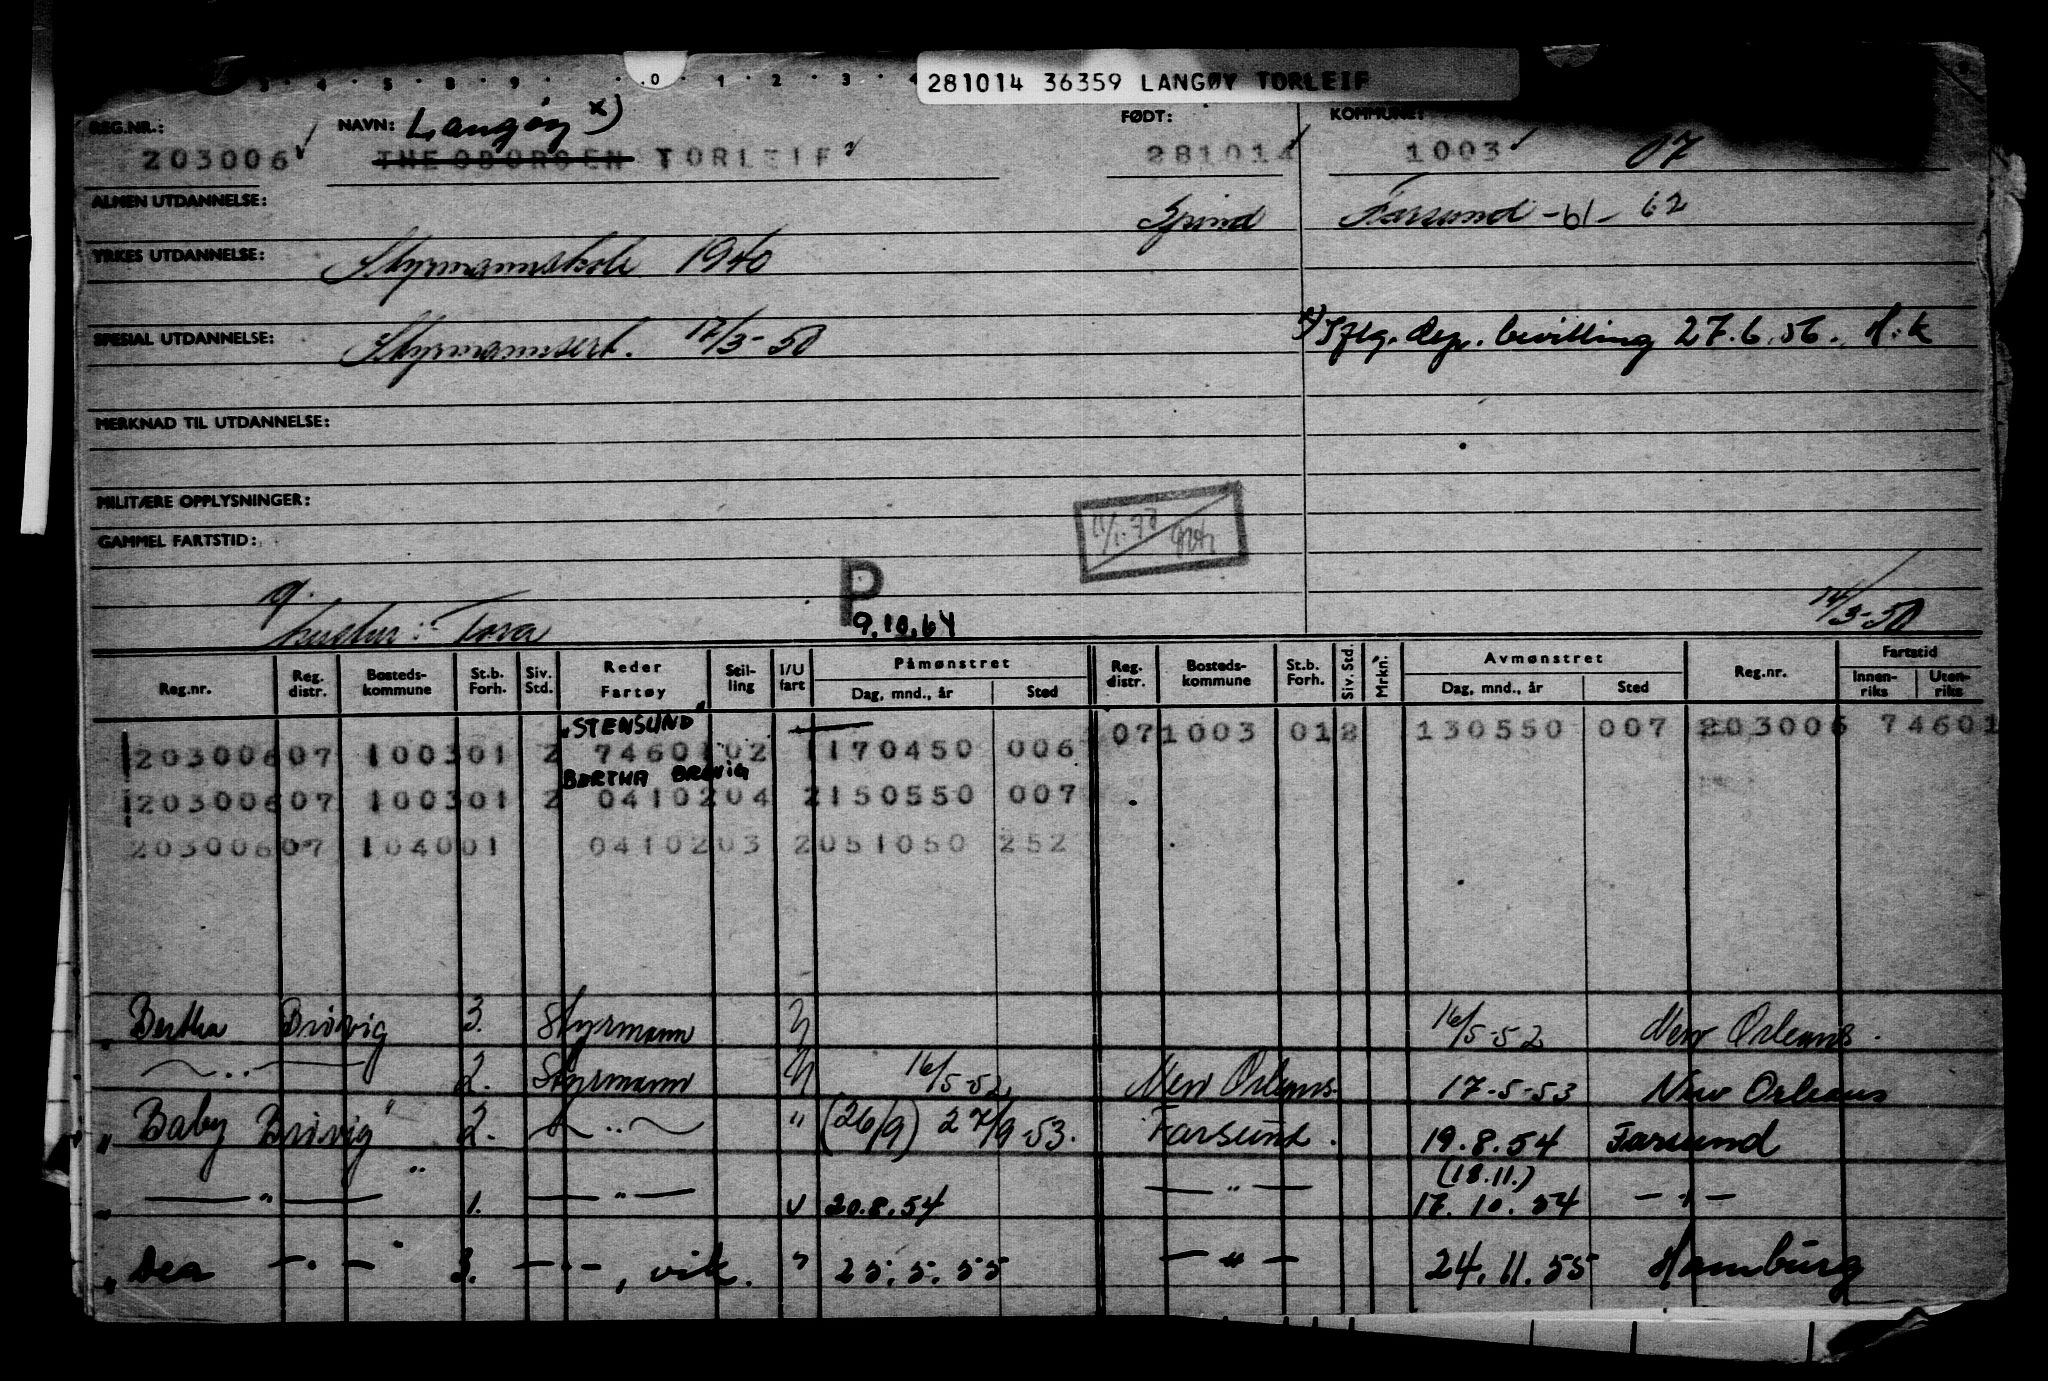 3 . 4 . 5 . 8 . 9 . . . 0 . 1 2 . 3 . 4
281014 36359 LANGØY TORLEIF
REG.NR.: NAVN: Langøy x) FØDT: KOMMUNE:
203006 THEODORSEN TORLEIF 281014 1003 07
ALMEN UTDANNELSE: Spind Farsund -61- 62
YRKES UTDANNELSE: Styrmannskole 1940
SPESIAL UTDANNELSE: Styrmannsert. 17/3-50 x) Iflg. dep. bevilling 27.6.56. H.k
MERKNAD TIL UTDANNELSE:
MILITÆRE OPPLYSNINGER:
GAMMEL FARTSTID:
P
g. 14/3-50
hustru: Tora 9.10.64
Reg.nr. Reg. distr. Bosteds-kommune St.b. Forh. Siv. Std. Reder Fartøy Stil-ling I/U fart Påmønstret Dag, mnd., år Sted Reg. distr. Bosteds-kommune St.b. Forh. Siv. Std. Mrkn: Avmønstret Dag, mnd., år Sted Reg.nr. Fartstid Innen-riks Uten-riks
"STENSUND"
203006 07 1003 01 2 74601 02 1 170450 006 07 1003 01 2 130550 007 203006 74601
BERTHA BRØVIG
203006 07 1003 01 2 04102 04 2 150550 007
203006 07 1040 01 04102 03 2 051050 252
Bertha Brøvig 3. Styrmann U 16/5-52 New Orleans.
— " — 2. Styrmann U 16/5-52 New Orleans. 17-5-53 New Orleans
"Baby Brøvig" 2. — " — " (26/9) 27/9-53. Farsund. 19.8.54 Farsund
(18.11.)
— " — 1. — " — U 20.8.54 — " — 17.10.54 — " —
"Dea — " — " 3. — " —, vik. " 25.5.55 — " — 24.11.55 Hamburg